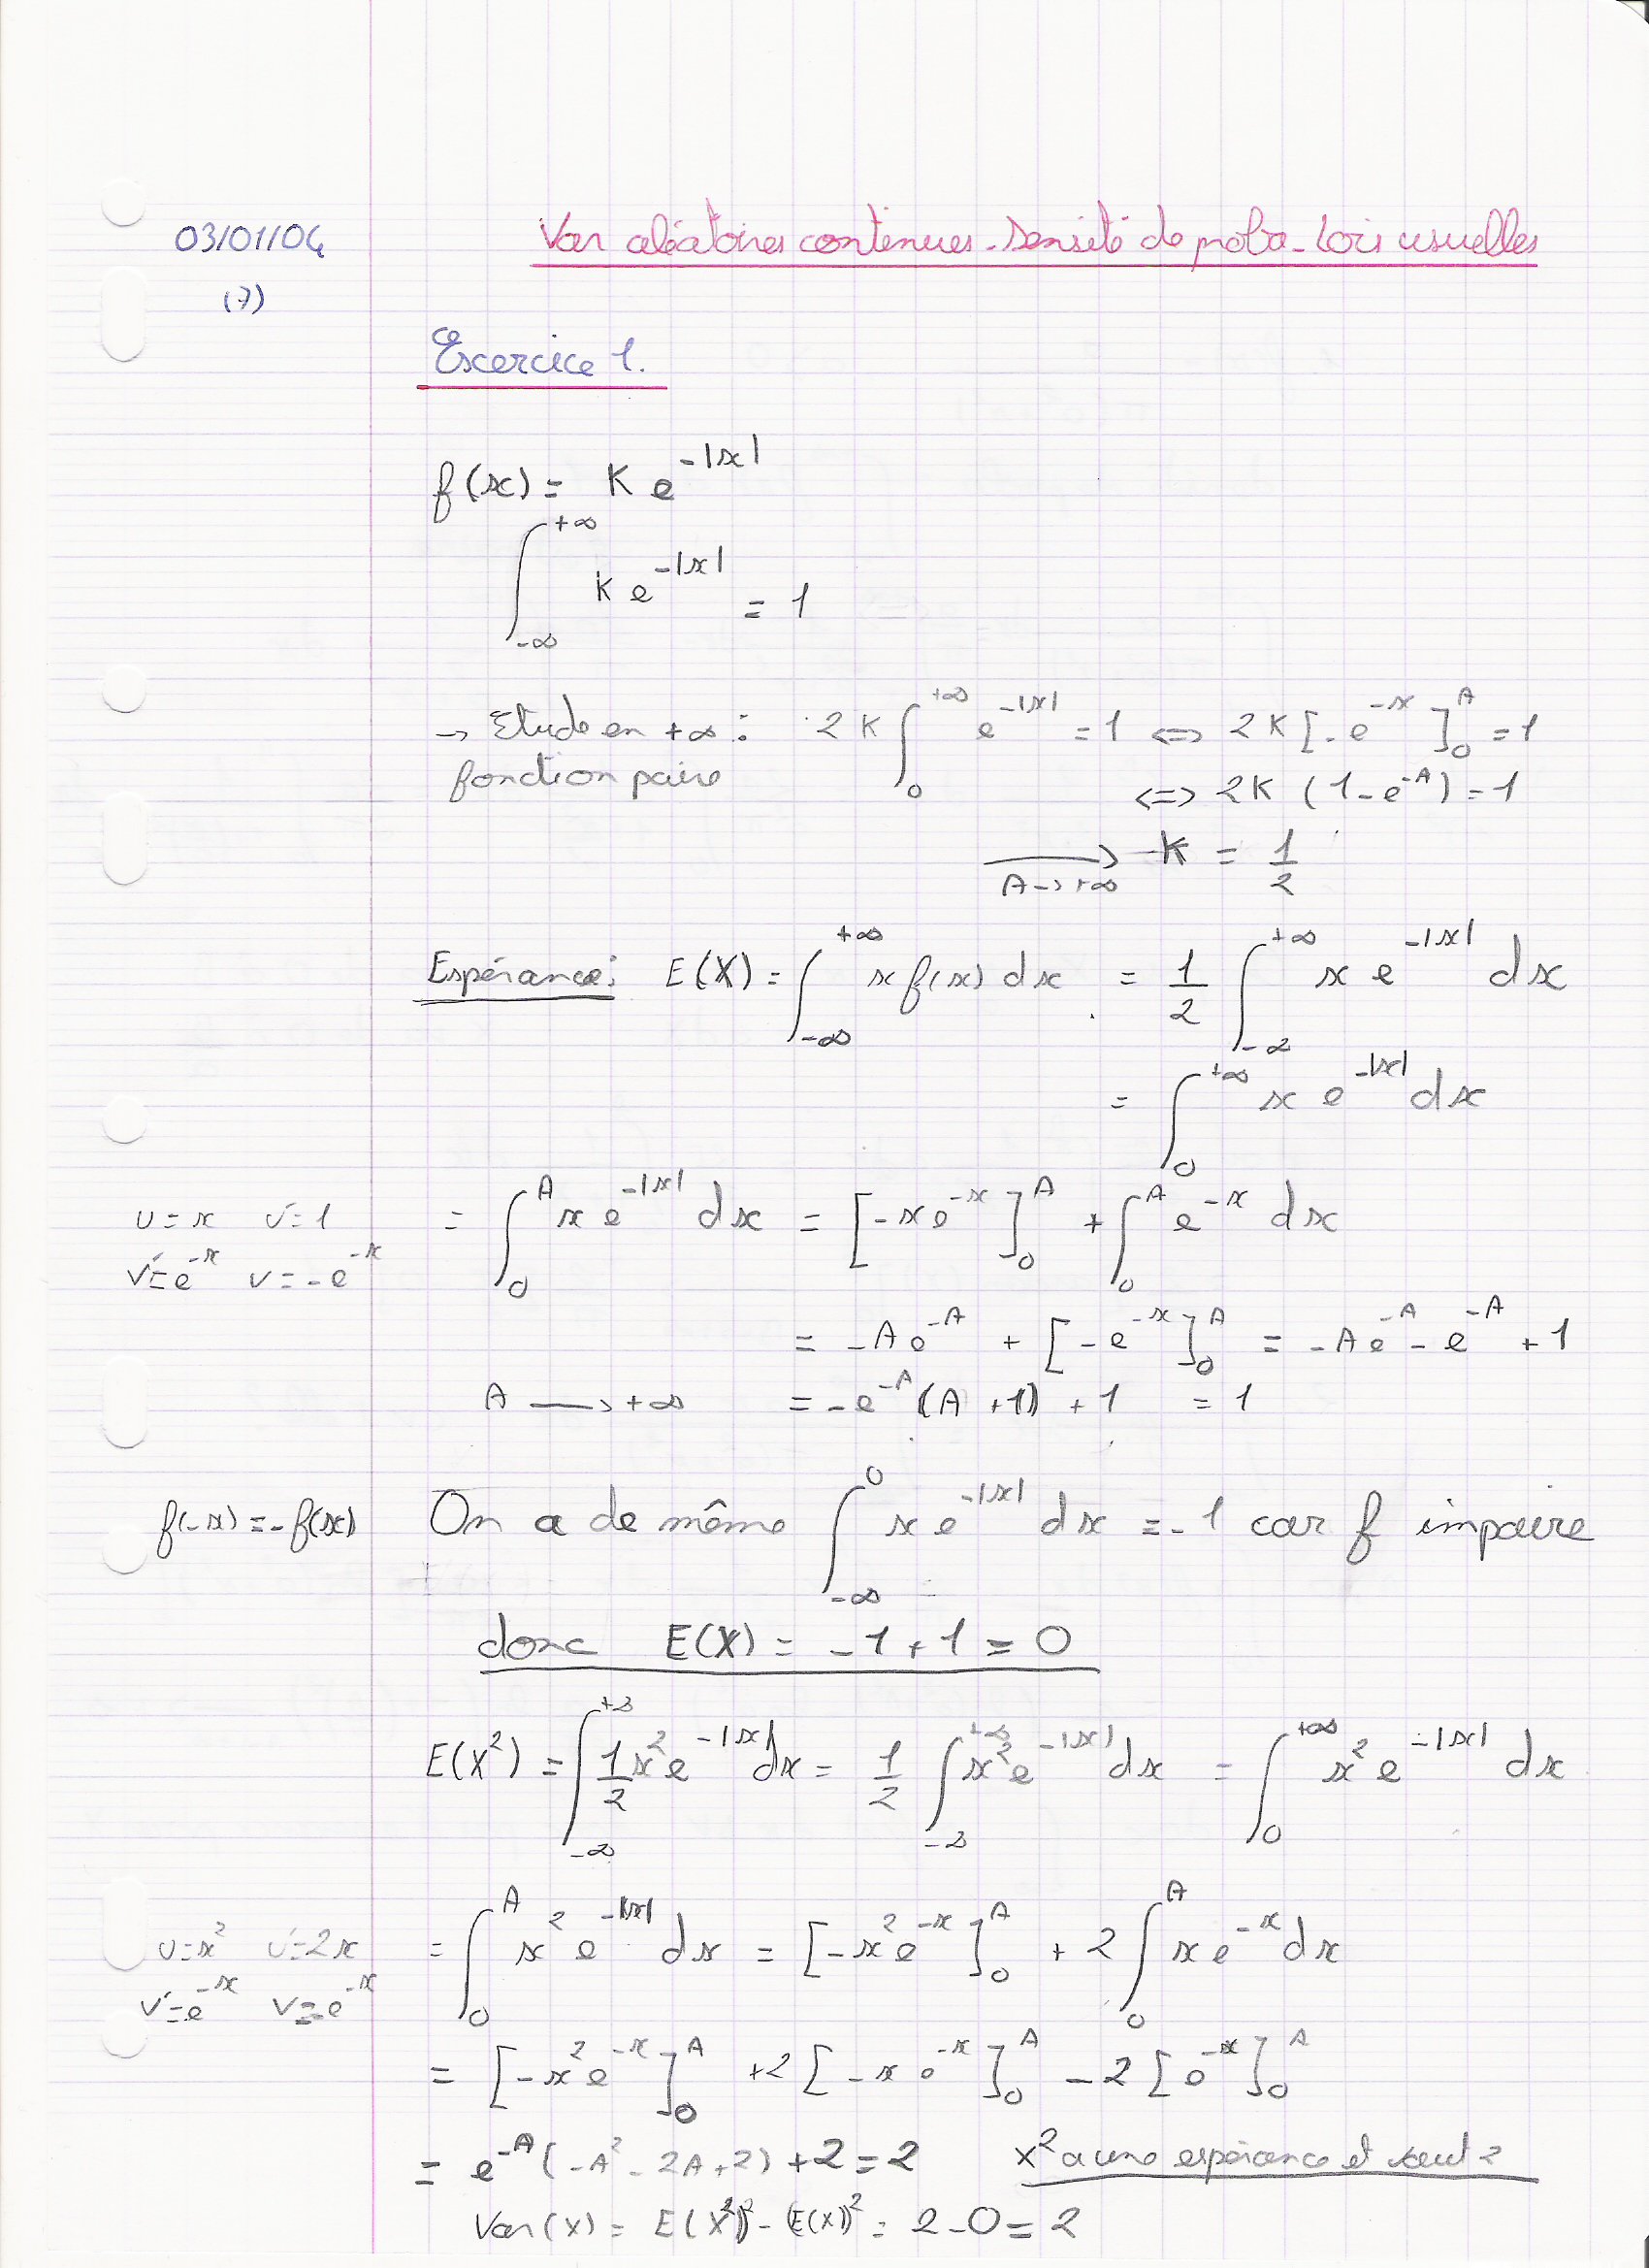 03/01/04 Var aléatoires continues - Densité de proba - Lois usuelles
(7)
Exercice 1.
f(x) = K e^{-|x|}
∫_{-∞}^{+∞} K e^{-|x|} = 1
→ Etude en +∞ : 2K ∫_0^{+∞} e^{-|x|} = 1 <=> 2K [-e^{-x}]_0^A = 1
fonction paire <=> 2K (1 - e^{-A}) = 1
→_{A→+∞} K = 1/2
Espérance : E(X) = ∫_{-∞}^{+∞} x f(x) dx = 1/2 ∫_{-∞}^{+∞} x e^{-|x|} dx
= ∫_0^{+∞} x e^{-|x|} dx
u = x u' = 1 = ∫_0^A x e^{-|x|} dx = [-x e^{-x}]_0^A + ∫_0^A e^{-x} dx
v' = e^{-x} v = -e^{-x}
= -A e^{-A} + [-e^{-x}]_0^A = -A e^{-A} - e^{-A} + 1
A → +∞ = -e^{-A} (A + 1) + 1 = 1
f(-x) = -f(x) On a de même ∫_{-∞}^0 x e^{-|x|} dx = -1 car f impaire
donc E(X) = -1 + 1 = 0
E(X²) = ∫_{-∞}^{+∞} 1/2 x² e^{-|x|} dx = 1/2 ∫_{-∞}^{+∞} x² e^{-|x|} dx = ∫_0^{+∞} x² e^{-|x|} dx
u = x² u' = 2x = ∫_0^A x² e^{-|x|} dx = [-x² e^{-x}]_0^A + 2 ∫_0^A x e^{-x} dx
v' = e^{-x} v = -e^{-x}
= [-x² e^{-x}]_0^A + 2 [-x e^{-x}]_0^A - 2 [e^{-x}]_0^A
= e^{-A} (-A² - 2A + 2) + 2 = 2 X² a une espérance et vaut 2
Var(X) = E(X²) - (E(X))² = 2 - 0 = 2